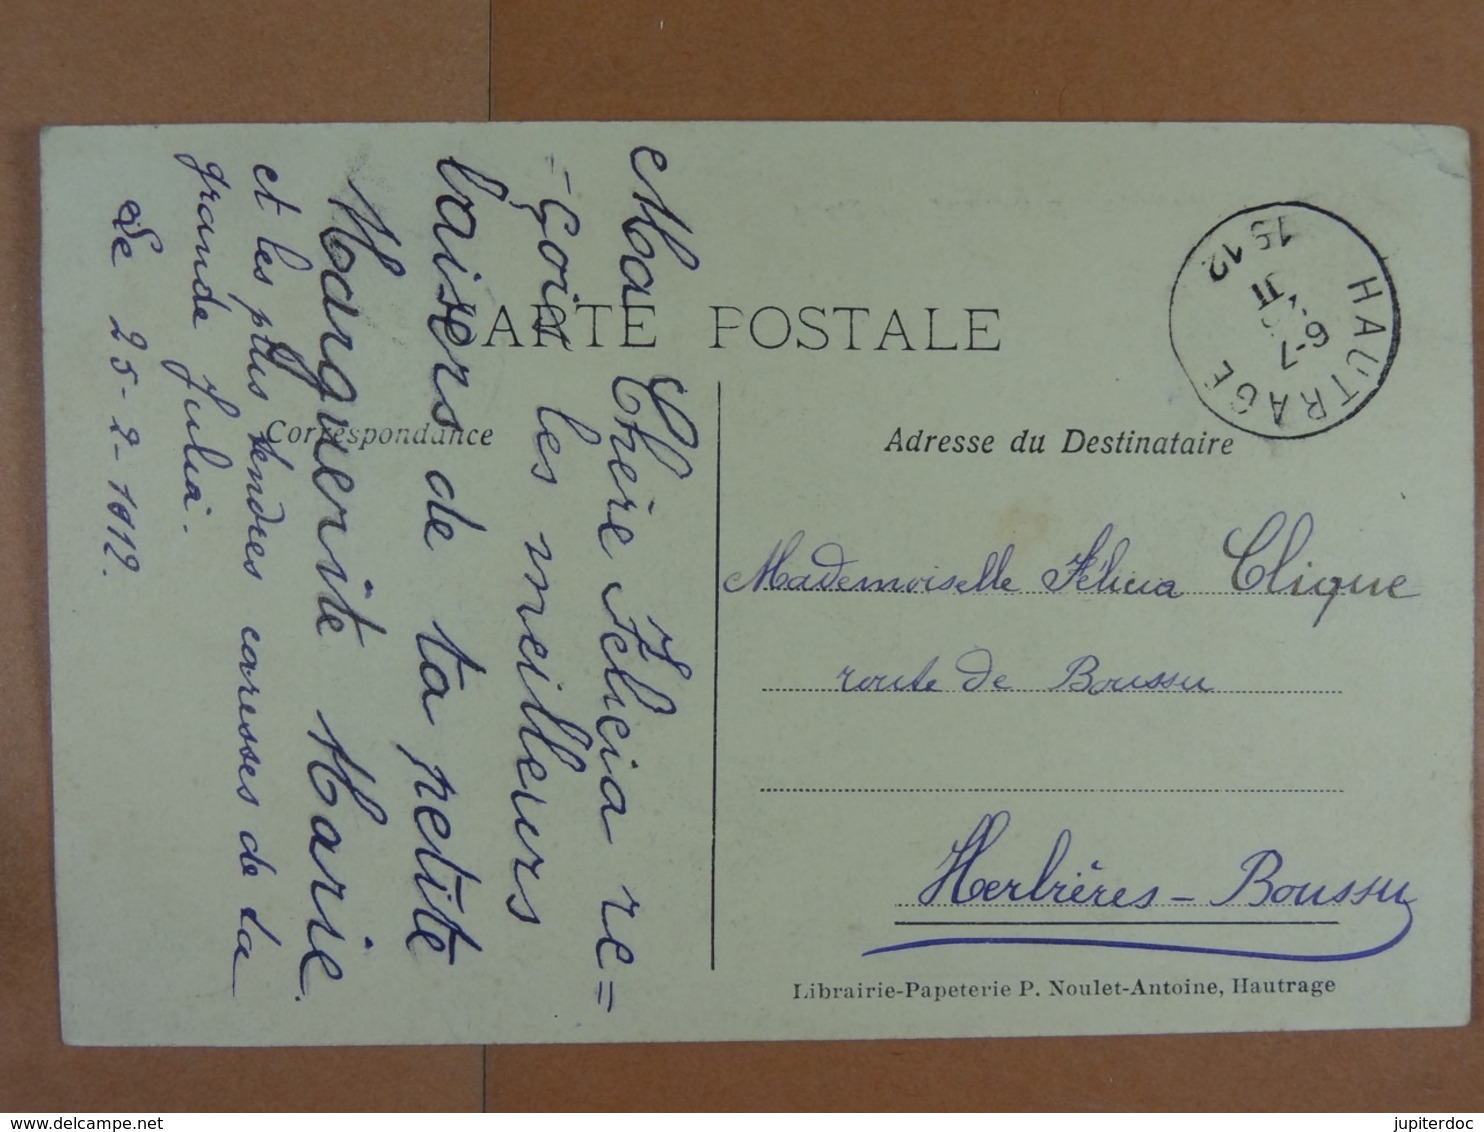 CARTE POSTALE
Correspondance
Ma Chère Félicia re=
-çois les meilleurs
baisers de ta petite
Marguerite Marie.
et les plus tendres caresses de la
grande Julia.
Le 25-2-1912.
HAUTRAGE
6-7
15 12
Adresse du Destinataire
Mademoiselle Félicia Clique
route de Boussu
Herbières - Boussu
Librairie-Papeterie P. Noulet-Antoine, Hautrage
jupiterdoc